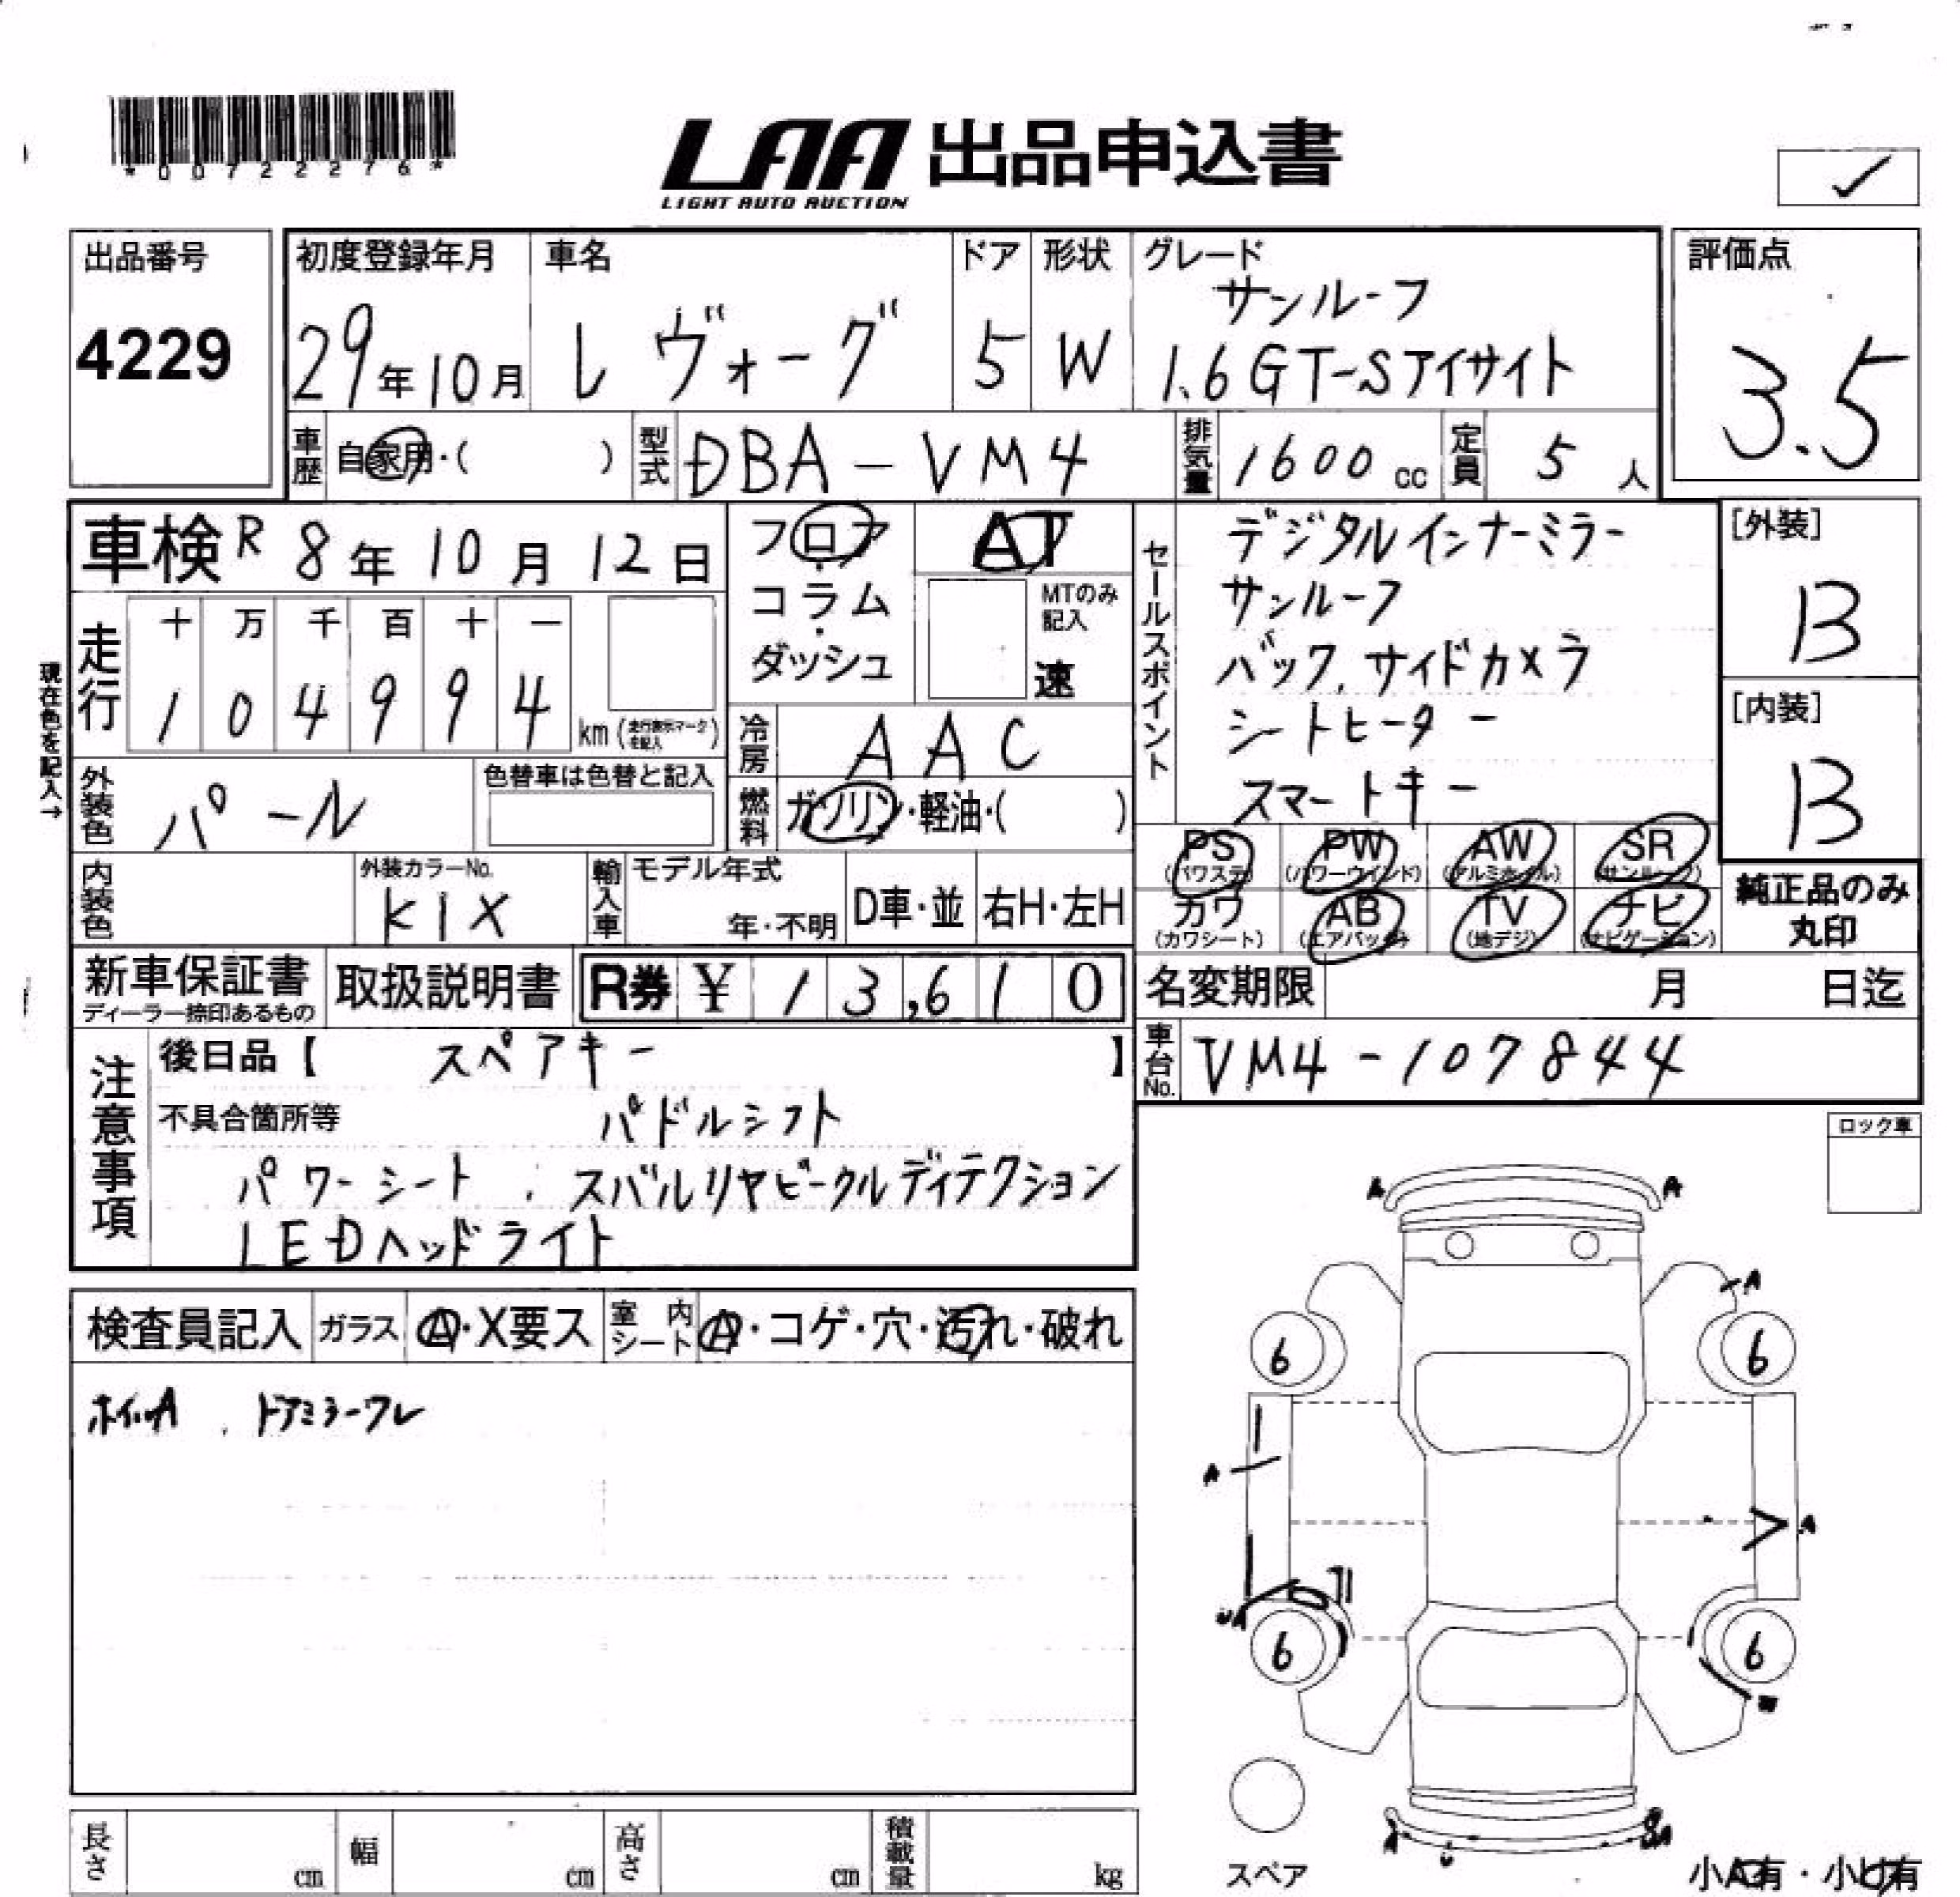 *00722276*
LAA 出品申込書
LIGHT AUTO AUCTION
出品番号
4229
初度登録年月
29年10月
車名
レヴォーグ
ドア
5
形状
W
グレード
サンルーフ
1.6GT-Sアイサイト
評価点
3.5
車歴 自家用・( )
型式 DBA-VM4
排気量 1600cc
定員 5人
車検 R8年10月12日
フロア・
コラム・
ダッシュ
AT
MTのみ
記入
速
セールスポイント
デジタルインナーミラー
サンルーフ
バック,サイドカメラ
シートヒーター
スマートキー
[外装]
B
[内装]
B
現在色を記入→
走行
十 万 千 百 十 一
1 0 4 9 9 4 km (走行表示マークを記入)
冷房 AAC
外装色 パール
色替車は色替と記入
燃料 ガソリン・軽油・( )
PS (パワステ)
PW (パワーウインド)
AW (アルミホイル)
SR (サンルーフ)
カワ (カワシート)
AB (エアバック)
TV (地デジ)
ナビ (ナビゲーション)
純正品のみ
丸印
内装色
外装カラーNo.
K1X
輸入車
モデル年式
年・不明
D車・並
右H・左H
新車保証書
ディーラー捺印あるもの
取扱説明書
R券 ¥ 13,610
名変期限 月 日迄
車台No. VM4-107844
注意事項
後日品【 スペアキー 】
不具合箇所等 パドルシフト
パワーシート , スバルリヤビークルディテクション
LEDヘッドライト
ロック車
検査員記入
ガラス A・X要ス
室内シート A・コゲ・穴・汚れ・破れ
ホイルA , ドアミラーワレ
A A
A
6 6
A
A
UA
6 6
W
A U UA
スペア
小A有・小U有
長さ cm
幅 cm
高さ cm
積載量 kg